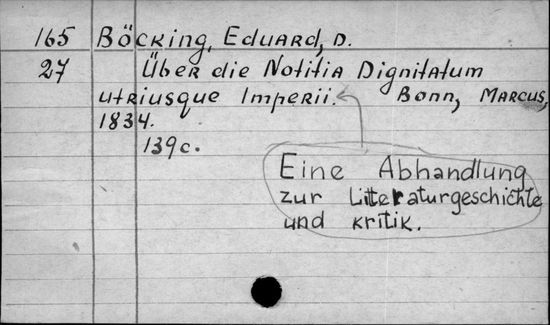 165 Böcking, Eduard, D.
27 Über die Notitia Dignitatum
utriusque Imperii. Bonn, Marcus,
1834.
139c.
Eine Abhandlung
zur Litteraturgeschichte
und Kritik.